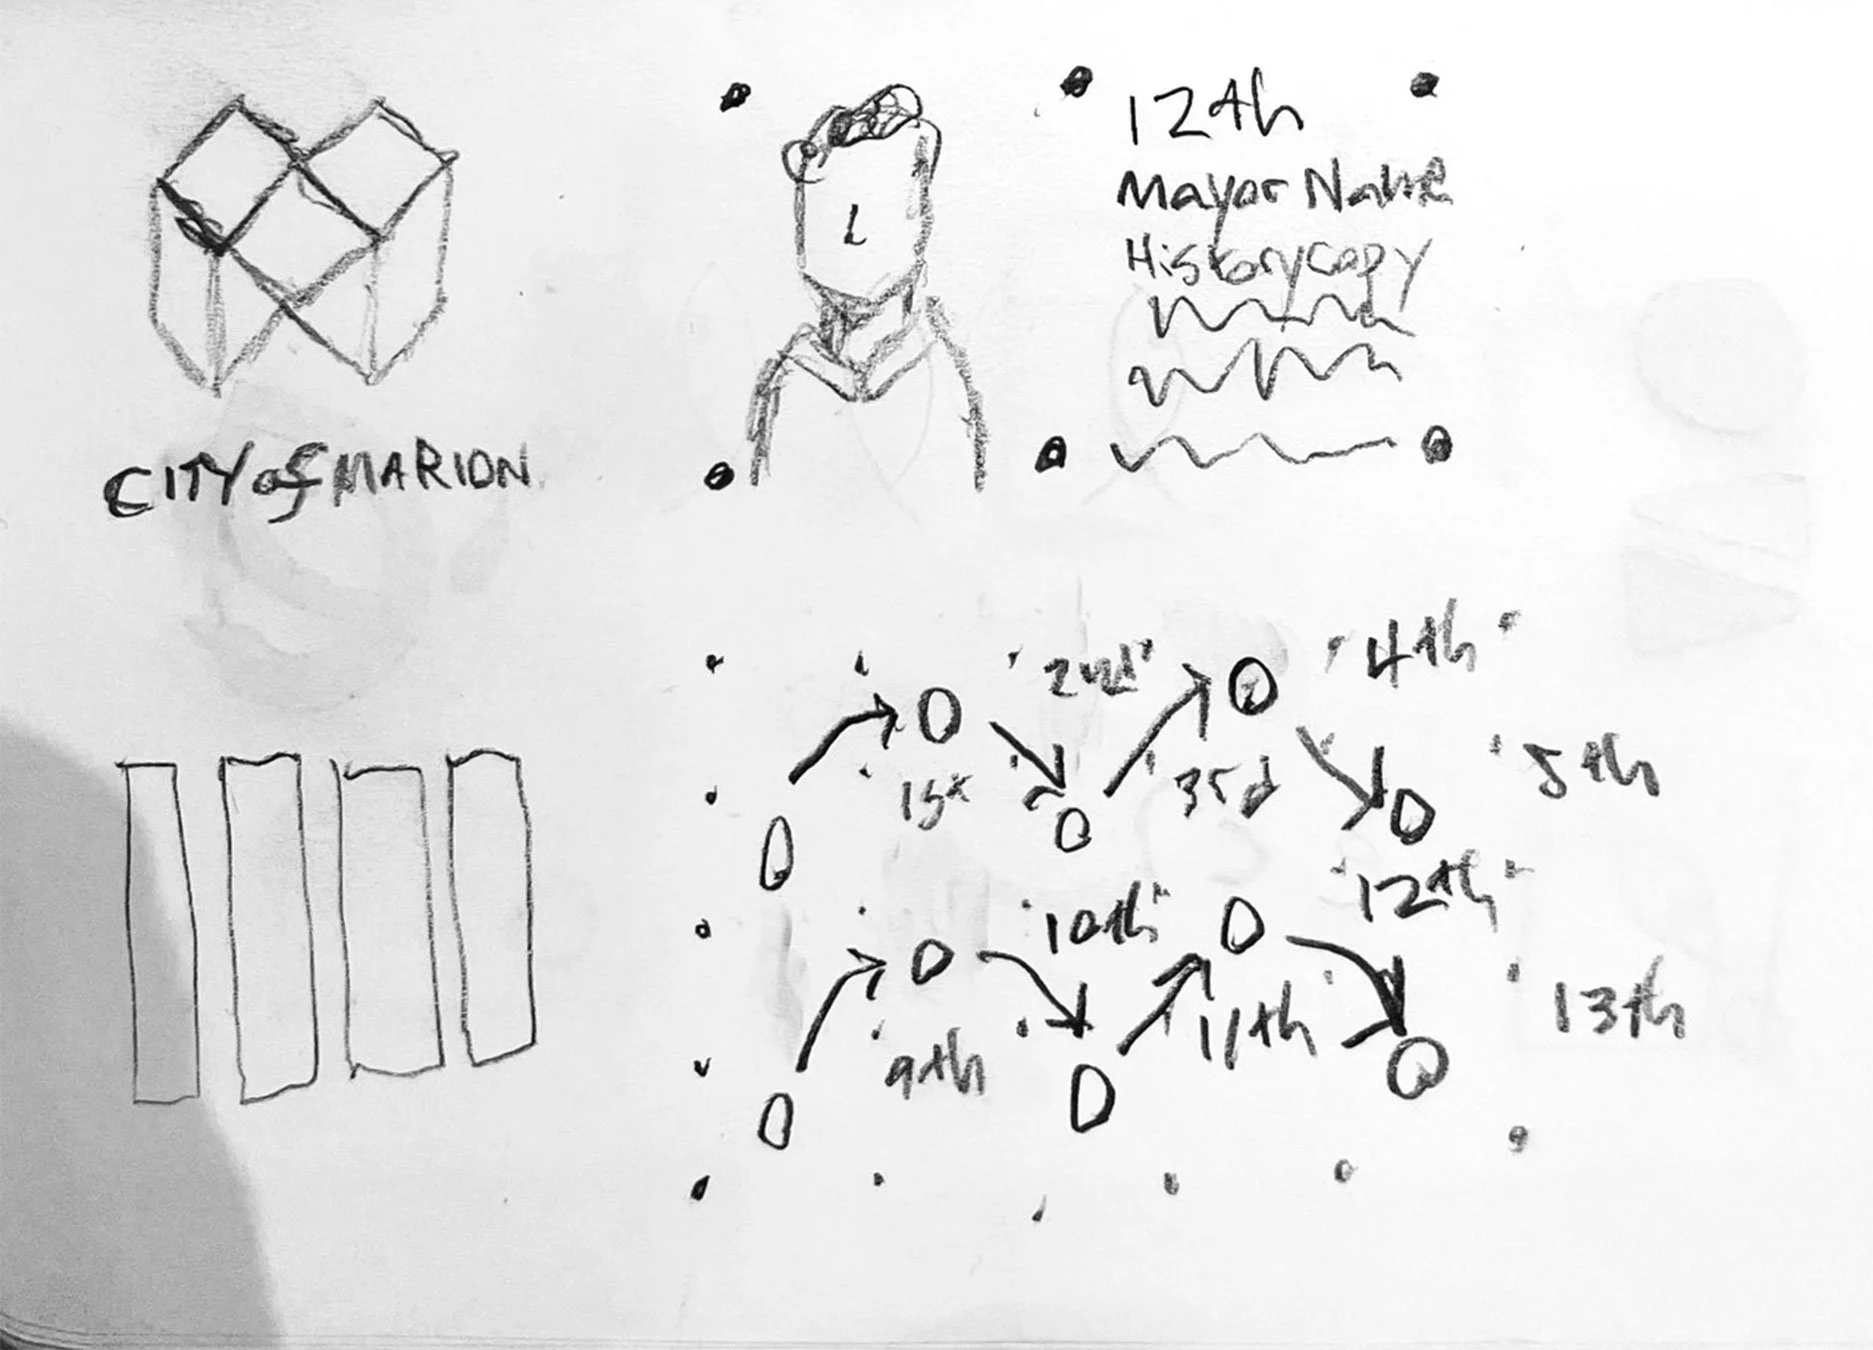 CITY of MARION
12th
Mayor Name
History copy
2nd
4th
1st
3rd
5th
10th
12th
9th
11th
13th